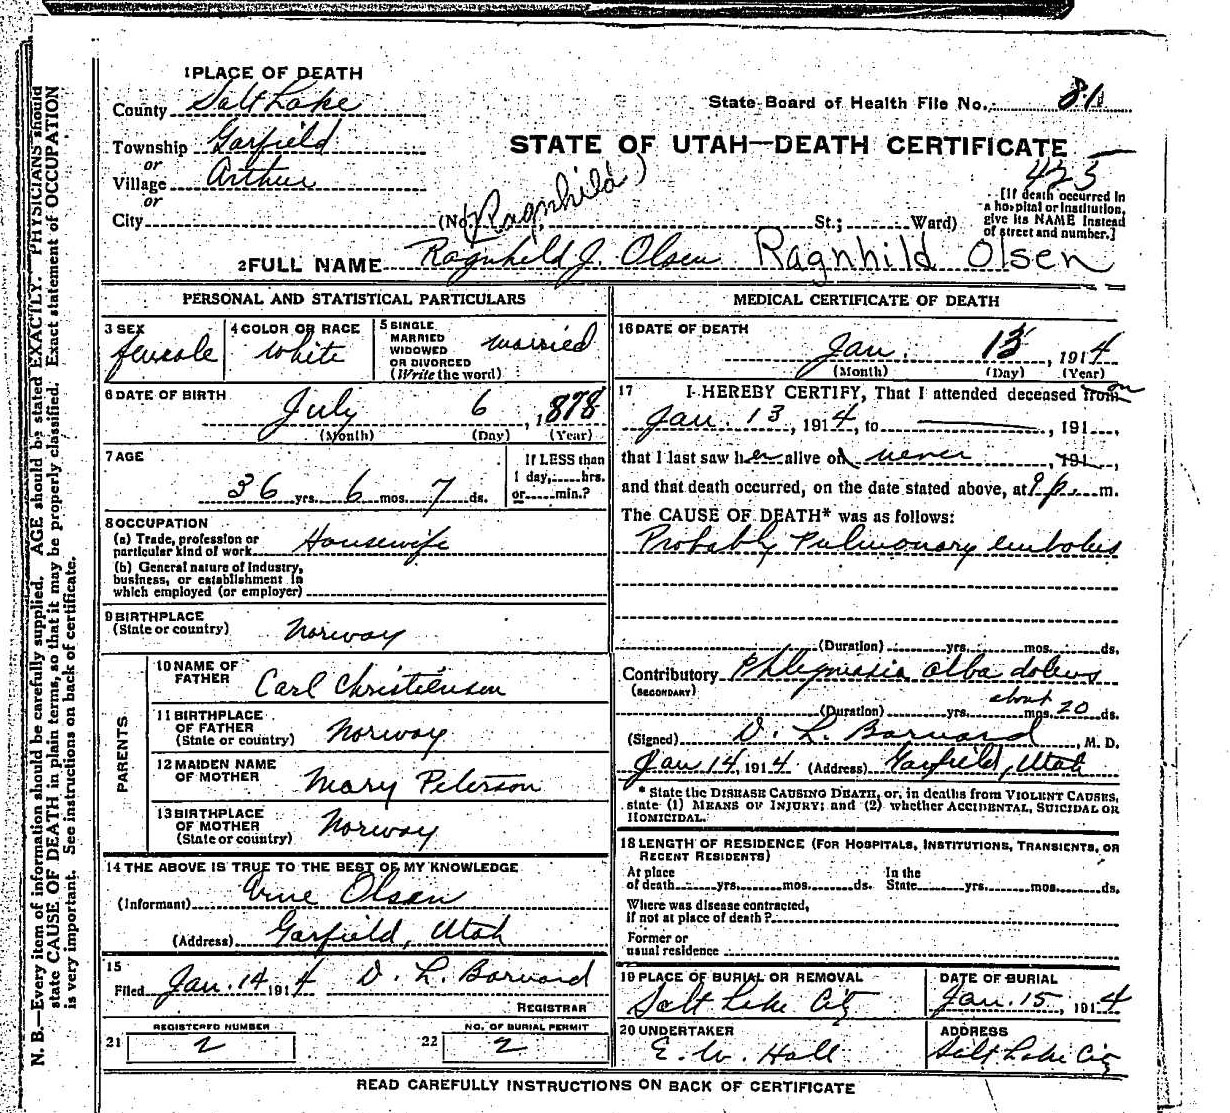 1 PLACE OF DEATH
County Salt Lake
Township Garfield
or
Village Arthur
or
City (No. (Ragnhild) St.; Ward)
State Board of Health File No. 81
STATE OF UTAH—DEATH CERTIFICATE
425
[If death occurred in
a hospital or institution,
give its NAME instead
of street and number.]
2 FULL NAME Ragnhild J. Olsen Ragnhild Olsen
PERSONAL AND STATISTICAL PARTICULARS
3 SEX
female
4 COLOR OR RACE
White
5 SINGLE
MARRIED
WIDOWED
OR DIVORCED
(Write the word)
married
6 DATE OF BIRTH
July 6, 1878
(Month) (Day) (Year)
7 AGE
36 yrs. 6 mos. 7 ds.
If LESS than
1 day, hrs.
or min.?
8 OCCUPATION
(a) Trade, profession or
particular kind of work Housewife
(b) General nature of Industry,
business, or establishment in
which employed (or employer)
9 BIRTHPLACE
(State or country) Norway
PARENTS
10 NAME OF
FATHER Carl Christiensen
11 BIRTHPLACE
OF FATHER
(State or country) Norway
12 MAIDEN NAME
OF MOTHER Mary Peterson
13 BIRTHPLACE
OF MOTHER
(State or country) Norway
14 THE ABOVE IS TRUE TO THE BEST OF MY KNOWLEDGE
(Informant) Arne Olsen
(Address) Garfield, Utah
15
Filed Jan. 14 1914 D. L. Barnard
REGISTRAR
21 REGISTERED NUMBER
2
22 NO. OF BURIAL PERMIT
2
MEDICAL CERTIFICATE OF DEATH
16 DATE OF DEATH
Jan. 13, 1914
(Month) (Day) (Year)
17 I HEREBY CERTIFY, That I attended deceased from on
Jan. 13, 1914, to , 191 ,
that I last saw her alive on never, 191 ,
and that death occurred, on the date stated above, at 9 p. m.
The CAUSE OF DEATH* was as follows:
Probably Pulmonary embolus
(Duration) yrs. mos. ds.
Contributory Phlegmasia alba dolens
(SECONDARY)
(Duration) yrs. mos. about 20 ds.
(Signed) D. L. Barnard, M. D.
Jan 14, 1914 (Address) Garfield, Utah
* State the DISEASE CAUSING DEATH, or, in deaths from VIOLENT CAUSES,
state (1) MEANS OF INJURY; and (2) whether ACCIDENTAL, SUICIDAL OR
HOMICIDAL.
18 LENGTH OF RESIDENCE (FOR HOSPITALS, INSTITUTIONS, TRANSIENTS, OR
RECENT RESIDENTS)
At place In the
of death yrs. mos. ds. State yrs. mos. ds.
Where was disease contracted,
if not at place of death?
Former or
usual residence
19 PLACE OF BURIAL OR REMOVAL
Salt Lake City
DATE OF BURIAL
Jan. 15, 1914
20 UNDERTAKER
E. W. Hall
ADDRESS
Salt Lake City
READ CAREFULLY INSTRUCTIONS ON BACK OF CERTIFICATE
N. B.—Every item of information should be carefully supplied. AGE should be stated EXACTLY. PHYSICIANS should
state CAUSE OF DEATH in plain terms, so that it may be properly classified. Exact statement of OCCUPATION
is very important. See instructions on back of certificate.